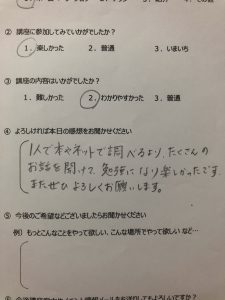 ② 講座に参加してみていかがでしたか？
1．楽しかった　2．普通　3．いまいち
③ 講座の内容はいかがでしたか？
1．難しかった　2．わかりやすかった　3．普通
④ よろしければ本日の感想をお聞かせください
1人で本やネットで調べるより、たくさんの
お話を聞けて、勉強になり楽しかったです。
またぜひよろしくお願いします。
⑤ 今後のご希望などございましたらお聞かせください
例）もっとこんなことをやって欲しい、こんな場所でやって欲しい など…